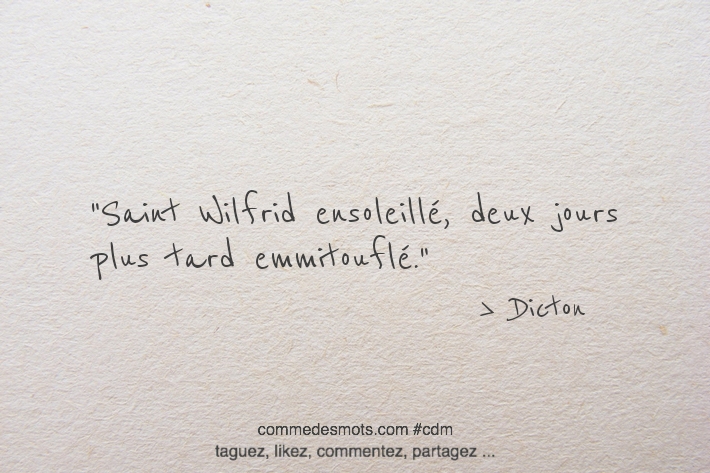 "Saint Wilfrid ensoleillé, deux jours
plus tard emmitouflé."
> Dicton
commedesmots.com #cdm
taguez, likez, commentez, partagez ...